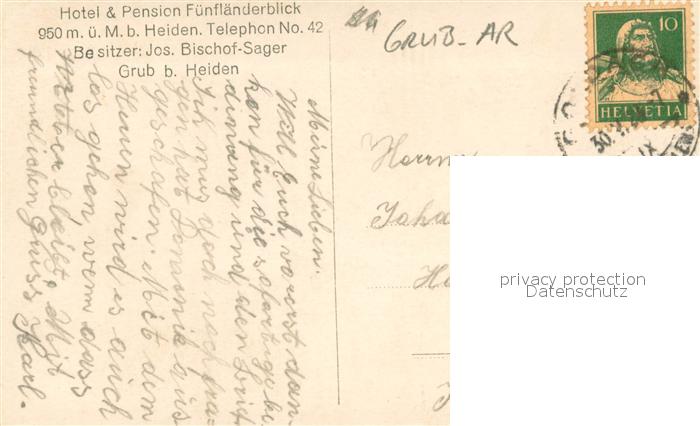 Hotel & Pension Fünfländerblick
950 m. ü. M. b. Heiden. Telephon No. 42
Besitzer: Jos. Bischof-Sager
Grub b. Heiden
GRUB-AR
10
HELVETIA
30.
IX
Meine Lieben.
Will Euch vorerst dan-
ken für die
und den Brief
Ich mus noch
gen hat Dominik aus
geschafen. Mit dem
Heuen wird es auch
los gehen wenn dass
Wetter bleibt. Mit
freundlichen Gruss Karl.
Herrn
privacy protection
Datenschutz